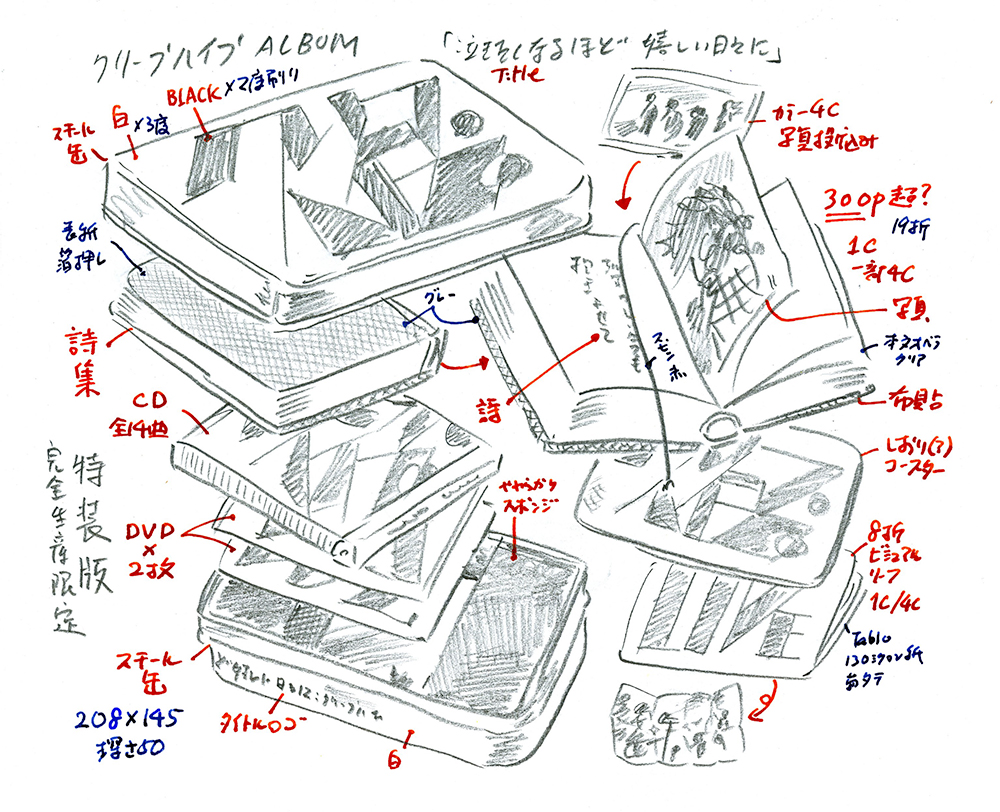 クリープハイプ ALBUM
「泣きたくなるほど嬉しい日々に」
Title
BLACK×2度刷り
白×3度
スチール
缶
カラー4C
写真投げ込み
300p超?
19折
1C
一部4C
写真
表紙
箔押し
グレー
詩集
詩
スピン
赤
クリア
布貼
CD
全14曲
しおり(?)
コースター
やわらかり
スポンジ
DVD
×
2枚
特装版
完全生産限定
8折
ビジュアル
リーフ
1C/4C
Tablo
130
スチール
缶
208×145
深さ50
タイトルロゴ
白